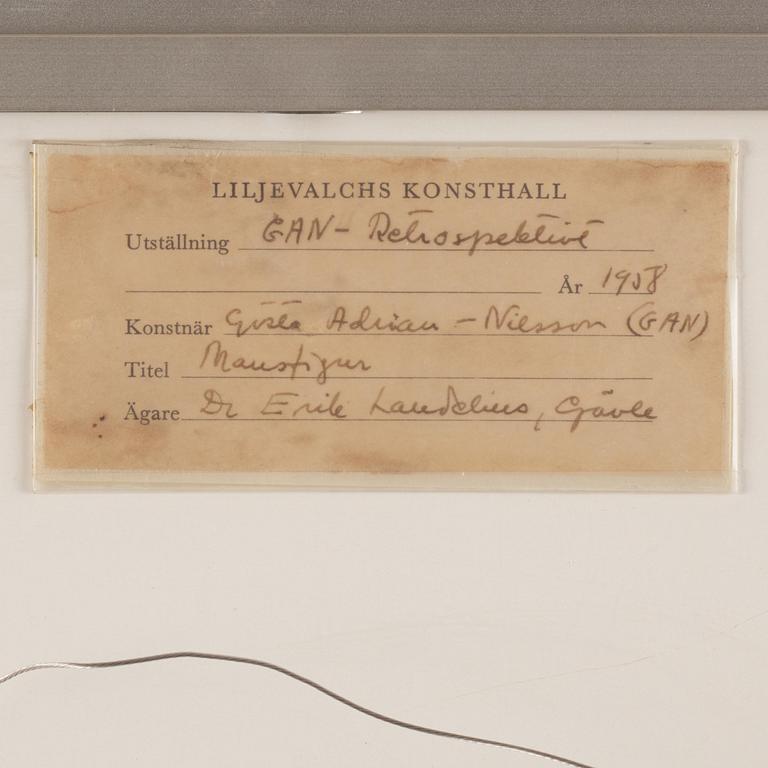 LILJEVALCHS KONSTHALL
Utställning GAN – Retrospektivt
År 1958
Konstnär Gösta Adrian – Nilsson (GAN)
Titel Mansfigur
Ägare Dr Erik Landelius, Gävle